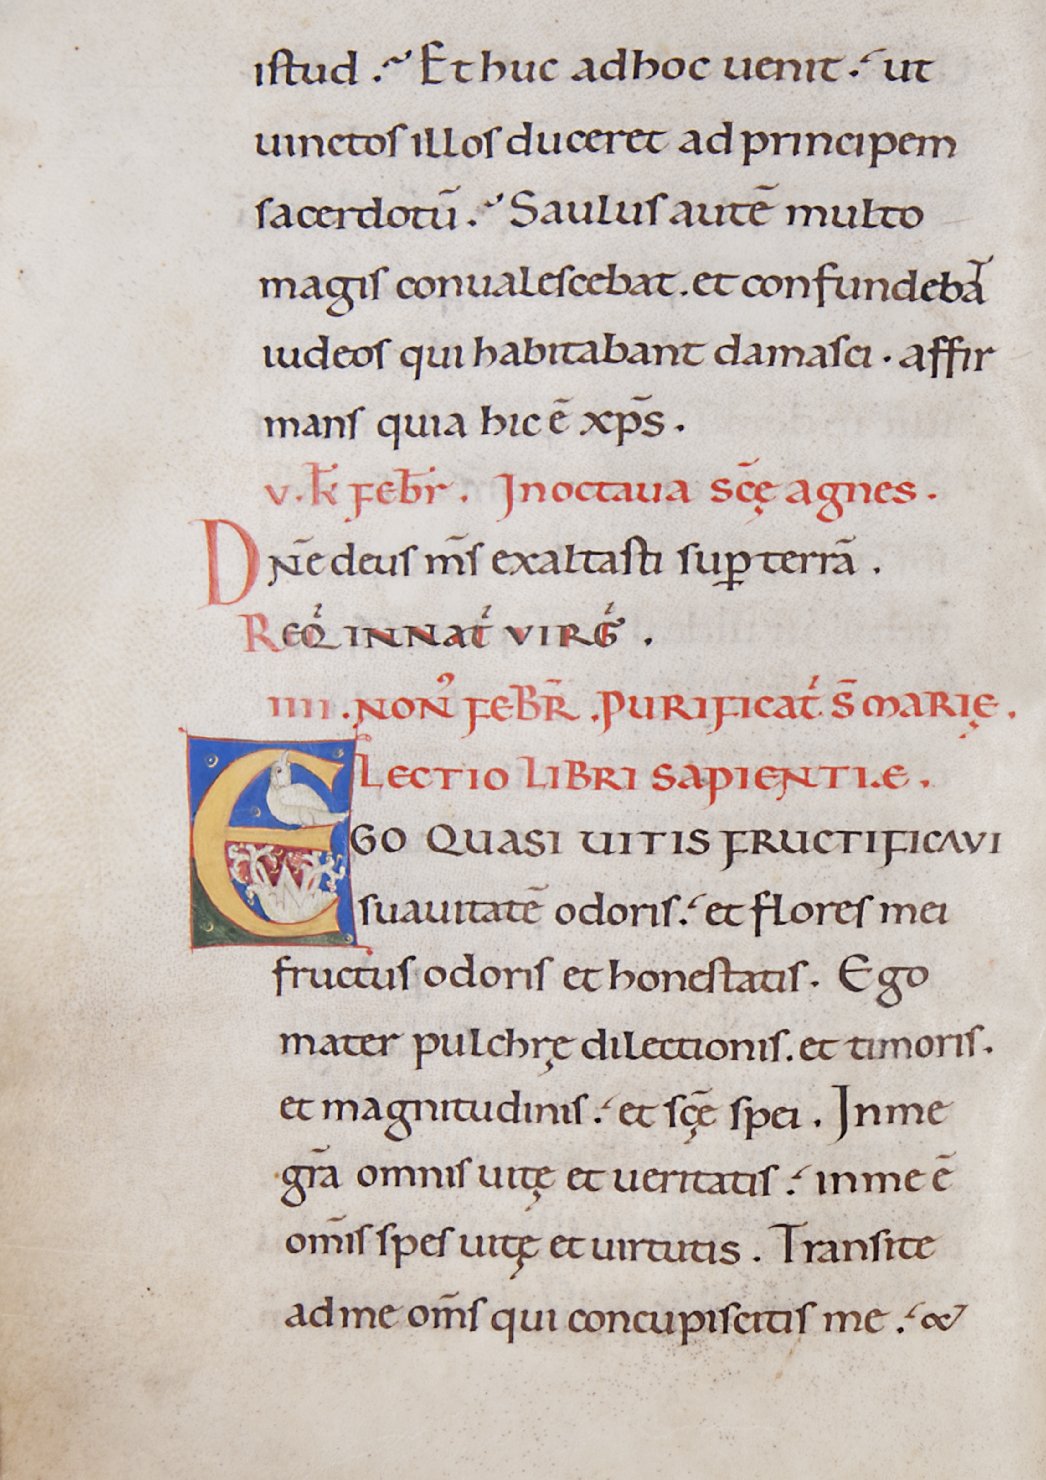 istud . Et huc ad hoc uenit . ut
uinctos illos duceret ad principem
sacerdotū . Saulus autē multo
magis conualescebat . et confundebāt
iudeos qui habitabant damasci . affir
mans quia hic ē xp̄s .
v . k̄ febr̄ . In octaua sc̄ę agnes .
Dn̄e deus m̄s exaltasti sup̱ terrā .
Req̇ in nat̄ virḡ .
IIII . non̄ febr̄ . purificat̄ . s̄ marię .
Lectio libri sapientiæ .
Ego quasi uitis fructificavi
suauitatē odoris . et flores mei
fructus odoris et honestatis . Ego
mater pulchrę dilectionis . et timoris .
et magnitudinis . et sc̄ę spei . In me
gr̄a omnis uitę et ueritatis . in me ē
om̄is spes uitę et uirtutis . Transite
ad me om̄s qui concupiscitis me . &